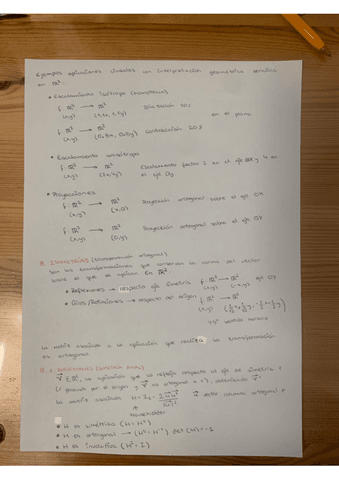 Ejemplos aplicaciones lineales con interpretación geométrica sencilla
en ℝ²
• Escalamiento isótropo (homotecia)
f: ℝ² → ℝ²
(x,y) (1,5x, 1,5y) en el plano
f: ℝ² → ℝ²
(x,y) contracción
• Escalamiento anisótropo
f: ℝ² → ℝ² Escalamiento factor 2 en el eje OX y 4 en
(x,y) el eje Oy
• Proyecciones
f: ℝ² → ℝ² Proyección ortogonal sobre el eje OX
(x,y) (x,0)
f: ℝ² → ℝ² Proyección ortogonal sobre el eje OY
(x,y) (0,y)
ISOMETRÍAS (transformación ortogonal)
Son las transformaciones que conservan la norma del vector
sobre el que se aplican. En ℝ².
• Reflexiones → respecto eje simetría f: ℝ² → ℝ² eje OY
(x,y) (-x,y)
• Giros/Rotaciones → respecto del origen f: ℝ² → ℝ²
(x,y)
45º sentido horario
La matriz asociada a la aplicación que realiza la transformación
es ortogonal.
REFLEXIONES (simetría axial)
v ∈ ℝⁿ, la aplicación que lo refleja respecto al eje de simetría r
(r pasando por el origen y v es ortogonal a r), obteniendo v'.
La matriz asociada H = I - vector columna ortogonal a
Householder
• H es simétrica (H = Hᵗ)
• H es ortogonal → (Hᵗ = H⁻¹) det (H) = -1
• H es involutiva (H² = I)